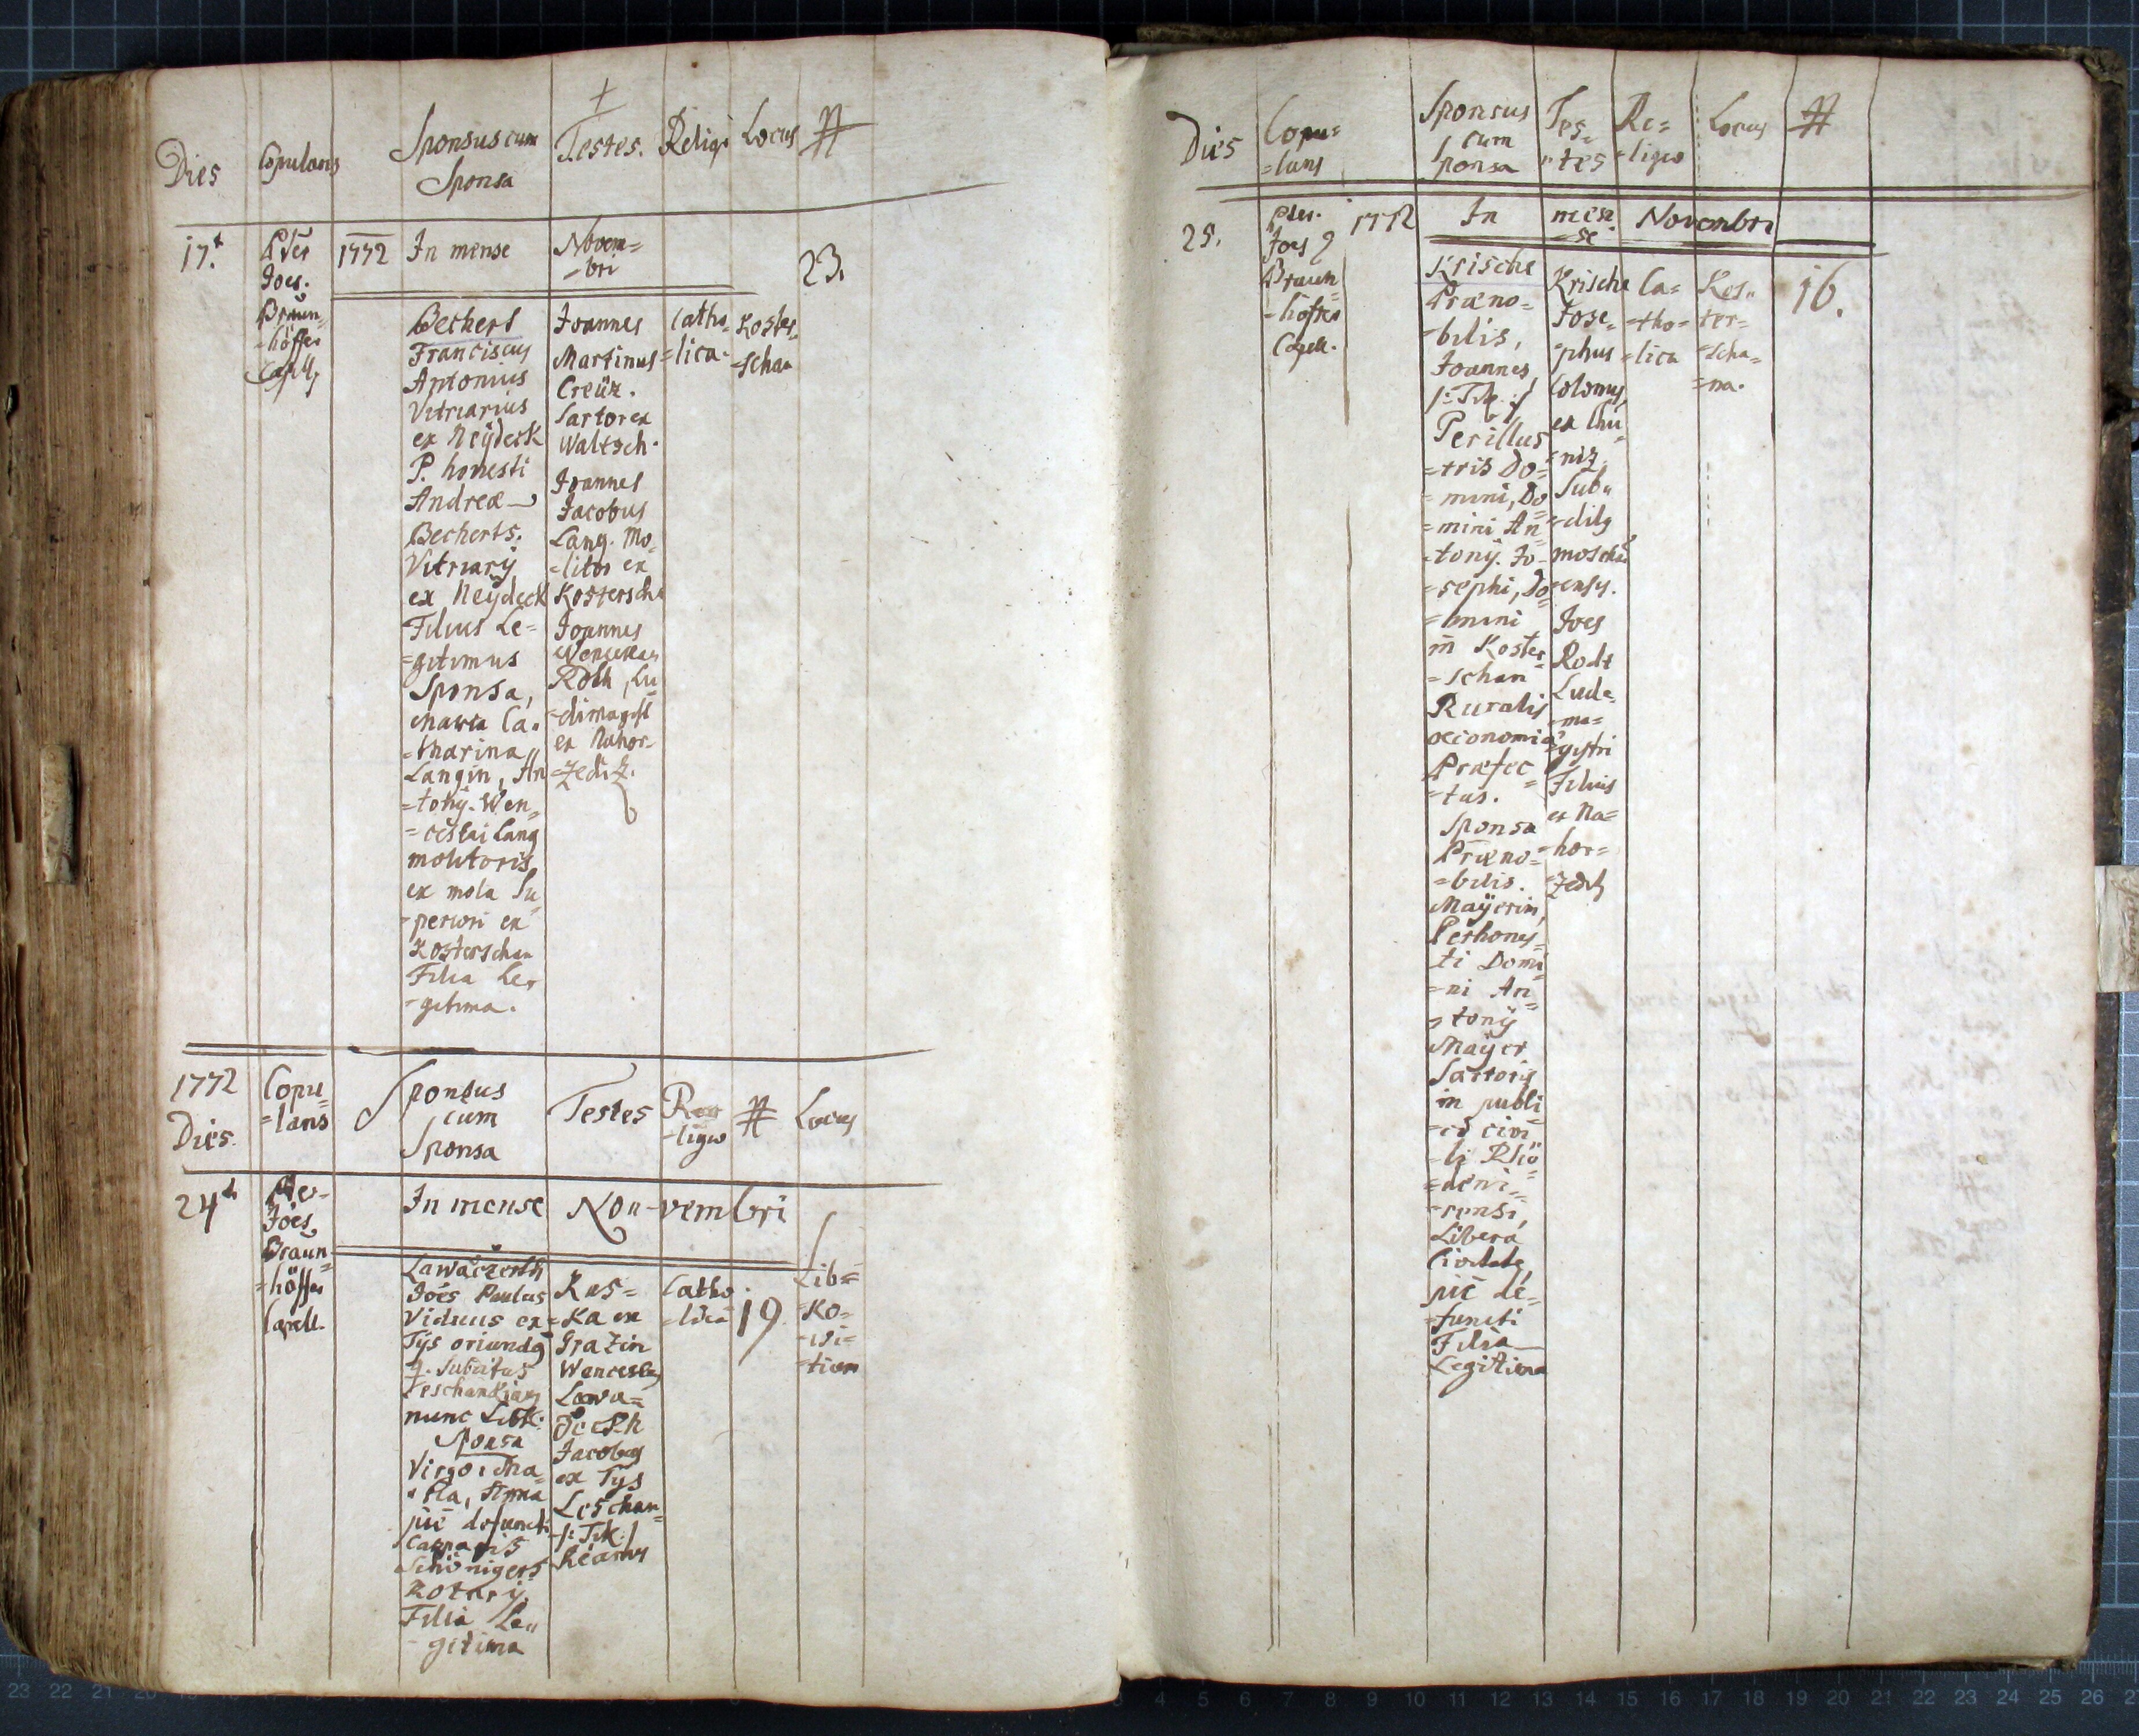 Dies
Copulans
Sponsus cum
Sponsa
Testes.
Religi
Locus
#
17.
Pter
Joes.
Braun=
=höffer
Capell
1772
In mense
Novem=
=bri
23.
Bechert
Franciscus
Antonius
Vitriarius
ex Neÿdeck
P. honesti
Andreæ
Becherts.
Vitriarÿ
ex Neÿdeck
Filius Le=
=gitimus
Sponsa,
Maria Ca=
=tharina
Langin, An
=tonÿ. Wen=
=ceslai Lang
molitoris
ex mola Su
=periori ex
Kosterschan
Filia Le=
=gitima.
Joannes
Martinus
Creütz.
Sartor ex
Waltsch.
Joannes
Jacobus
Lang. Mo=
=litor ex
Kostersch
Joannes
Wenceslaus
Roth, Lu
=dimagist
ex Nahor=
=zediz.
Catho=
=lica.
Koster
=schan
1772
Dies.
Copu=
=lans
Sponsus
cum
Sponsa
Testes
Re
=ligio
#
Locus
24
Pter
Joes.
Braun=
=höffer
Capell.
In mense
No=vembri
Joes Paulus
Viduus ex
Tÿs oriundg
q. subditus
nunc Libk.
Sponsa
Virgo: Ma=
=ria, Anna
pie defuncti
Casparis
Schönigers
Rotarÿ.
Filia Le=
=gitima
Ras=
=ka ex
Grazin
Wenceslaus
Lawa=
Jacobus
ex Tÿs
Leschan
Catho
=lica
19
Lib=
=ko=
=wi=
Dies
Copu=
=lans
Sponsus
cum
Sponsa
Tes=
=tes
Re=
=ligio
Locus
#
25.
Pter.
Joes
Braun
=höffer
Capell.
1772
In
men
=se
Novembri
Krische
Præno=
=bilis,
Joannes,
/: Tit: /
Perillus
=tris Do=
=mini, Do
=mini An=
=tonÿ. Jo=
=sephi, Do=
=mini
in Koster
=schan
Ruralis
œconomiæ
Præfec
=tus.
Sponsa
Præno=
=bilis.
Maÿerin,
Perhones=
ti Domi
=ni An=
=tonÿ
Maÿer
Sartoris
in publi
Libera
Civitate,
pie de=
=functi
Filia
Legitima
Krische
Jose=
=phus
Colonus
ex Chu
=niz.
Sub=
=ditg
Joes
Rodt
Lude=
=ma=
=gistri
Filius
ex Na=
=hor=
=zediz
Ca=
=tho=
=lica
Kos=
ter=
=scha=
=na.
16.